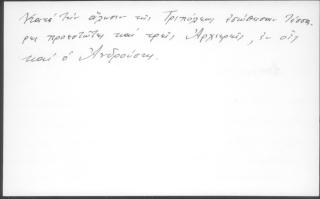 Κατά τήν ἅλωσιν τῆς Τριπόλεως ἐσώθησαν τέσσα-
ρες προεστῶτες καί τρεῖς Ἀρχιερεῖς, ἐν οἷς
καί ὁ Ἀνδρούσης.